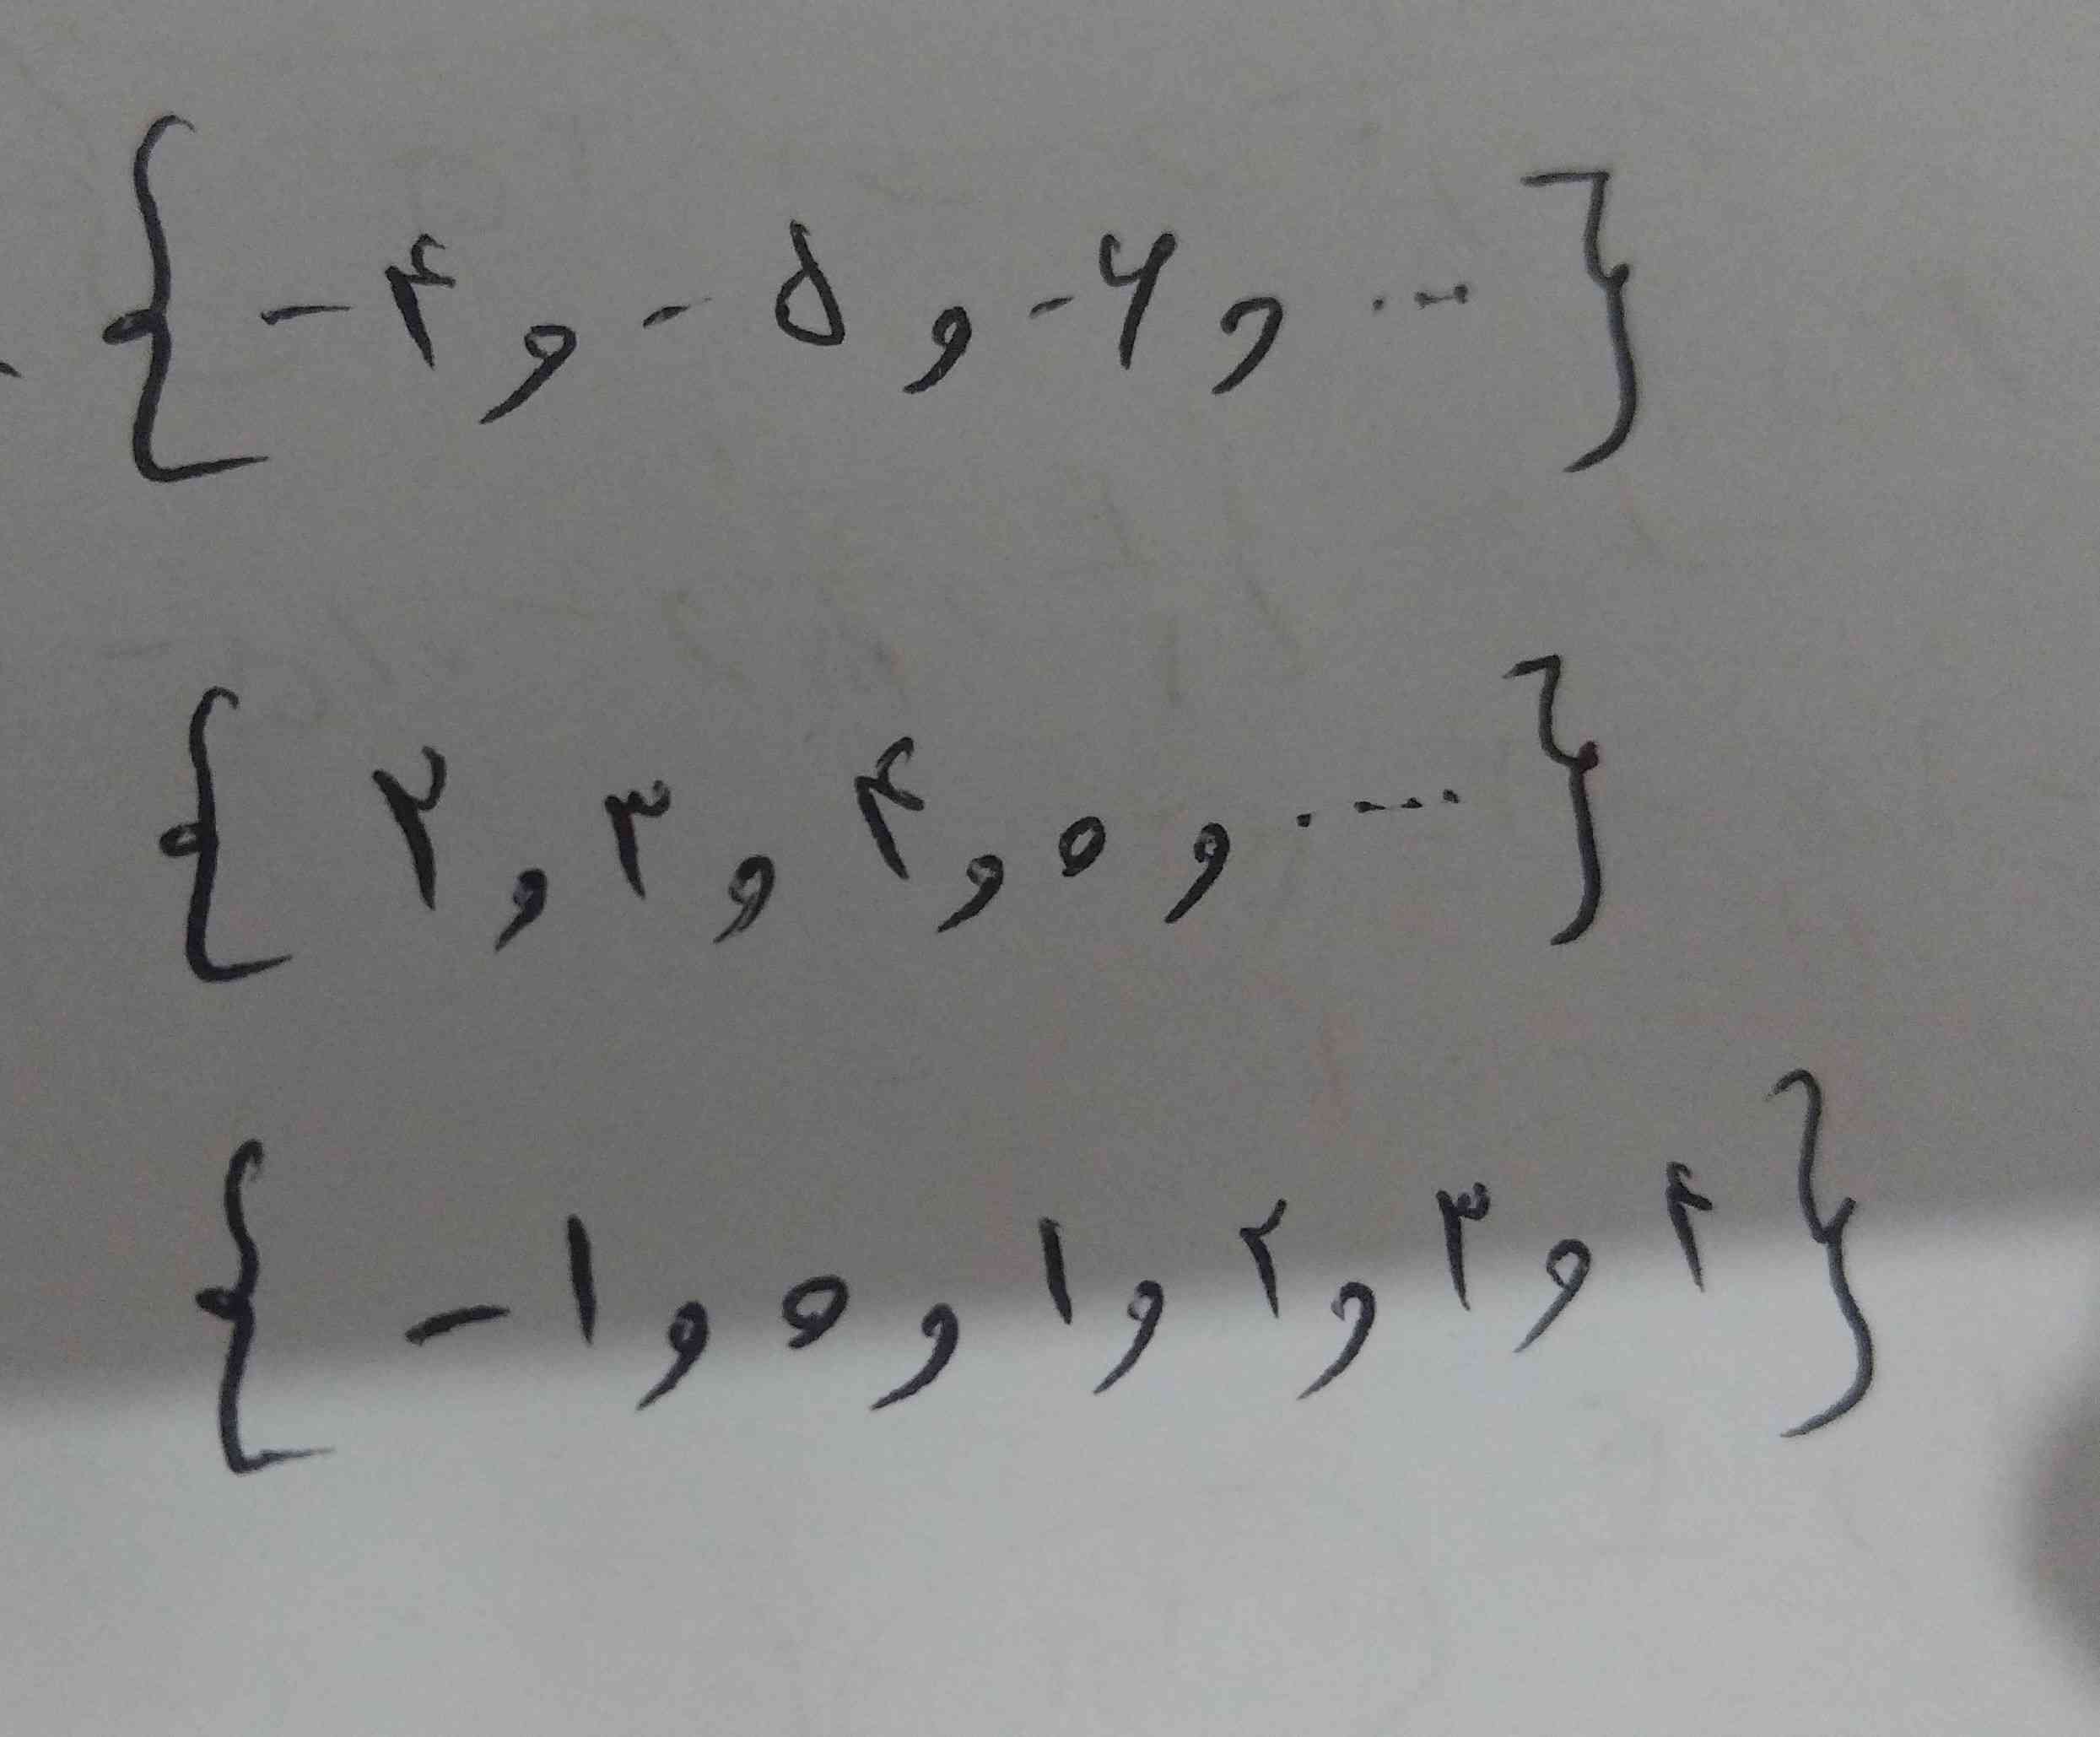 {-۴, -۵, -۶, ...}
{۲, ۳, ۴, ۵, ....}
{-۱, ۰, ۱, ۲, ۳, ۴}